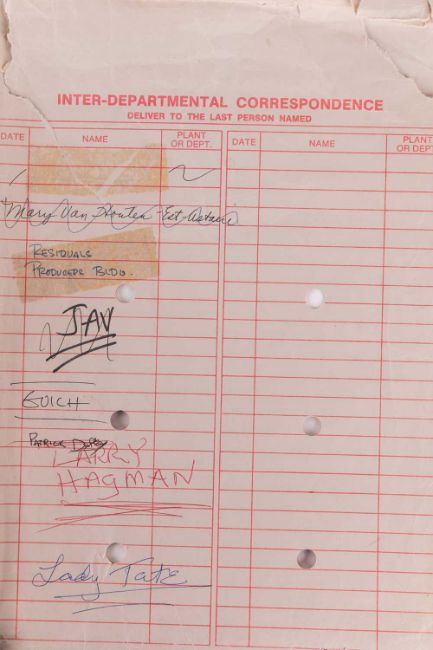 INTER-DEPARTMENTAL CORRESPONDENCE
DELIVER TO THE LAST PERSON NAMED
DATE NAME PLANT OR DEPT. DATE NAME PLANT OR DEPT.
Mary Van Houten
RESIDUALS
PRODUCERS BLDG.
JAV
GUICH
PATRICK
LARRY
HAGMAN
Lady Tate